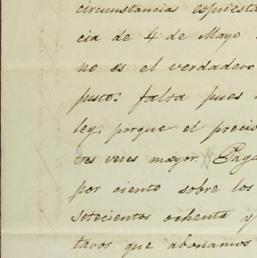 circunstancias espuesta
cia de 4 de Mayo
no es el verdadero
puto: falta pues
ley, porque el precio
tres veces mayor. Paga
por ciento sobre los
Setecientos ochenta y
tavos que abonamos